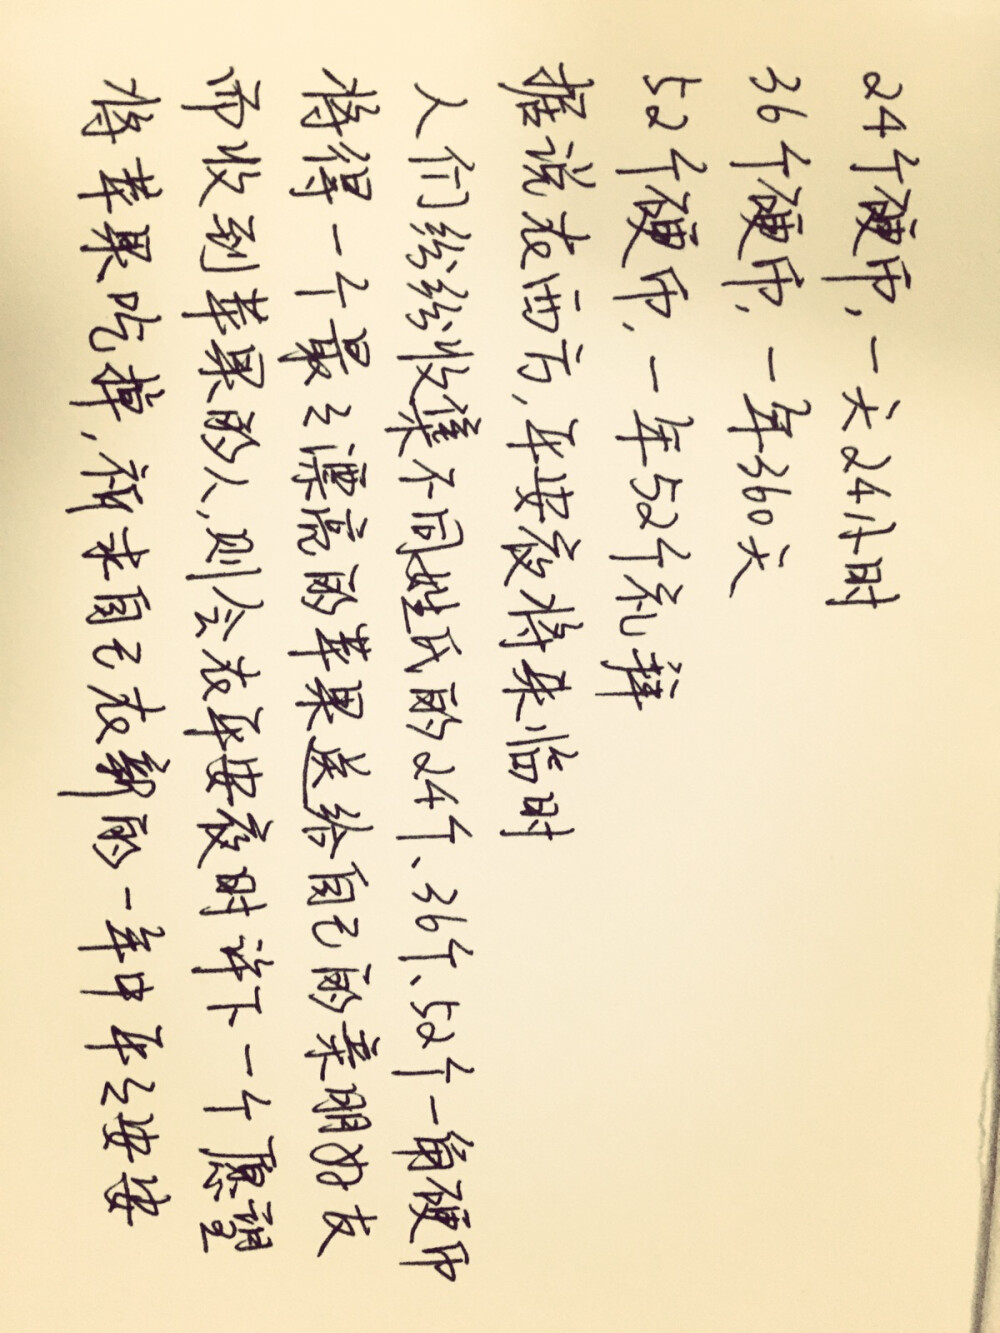 24个硬币，一天24小时
36个硬币，一年360天
52个硬币，一年52个礼拜
据说在西方，平安夜将来临时
人们纷纷收集不同姓氏的24个、36个、52个一角硬币
将得一个最最漂亮的苹果送给自己的亲朋好友
而收到苹果的人，则会在平安夜时许下一个愿望
将苹果吃掉，祈求自己在新的一年中平平安安